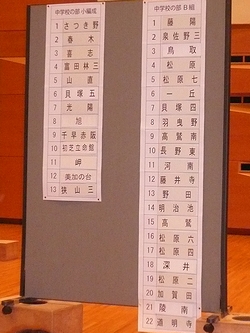 中学校の部 小編成
1 さつき野
2 春木
3 喜志
4 富田林三
5 山直
6 貝塚五
7 光陽
8 旭
9 千早赤阪
10 初芝立命館
11 岬
12 美加の台
13 狭山三
中学校の部 B組
1 藤陽
2 泉佐野三
3 鳥取
4 松原
5 松原七
6 一丘
7 貝塚四
8 羽曳野
9 高鷲南
10 長野東
11 河南
12 藤井寺
13 野田
14 明治池
15 高鷲
16 松原六
17 松原四
18 深井
19 松原二
20 加賀田
21 陵南
22 道明寺